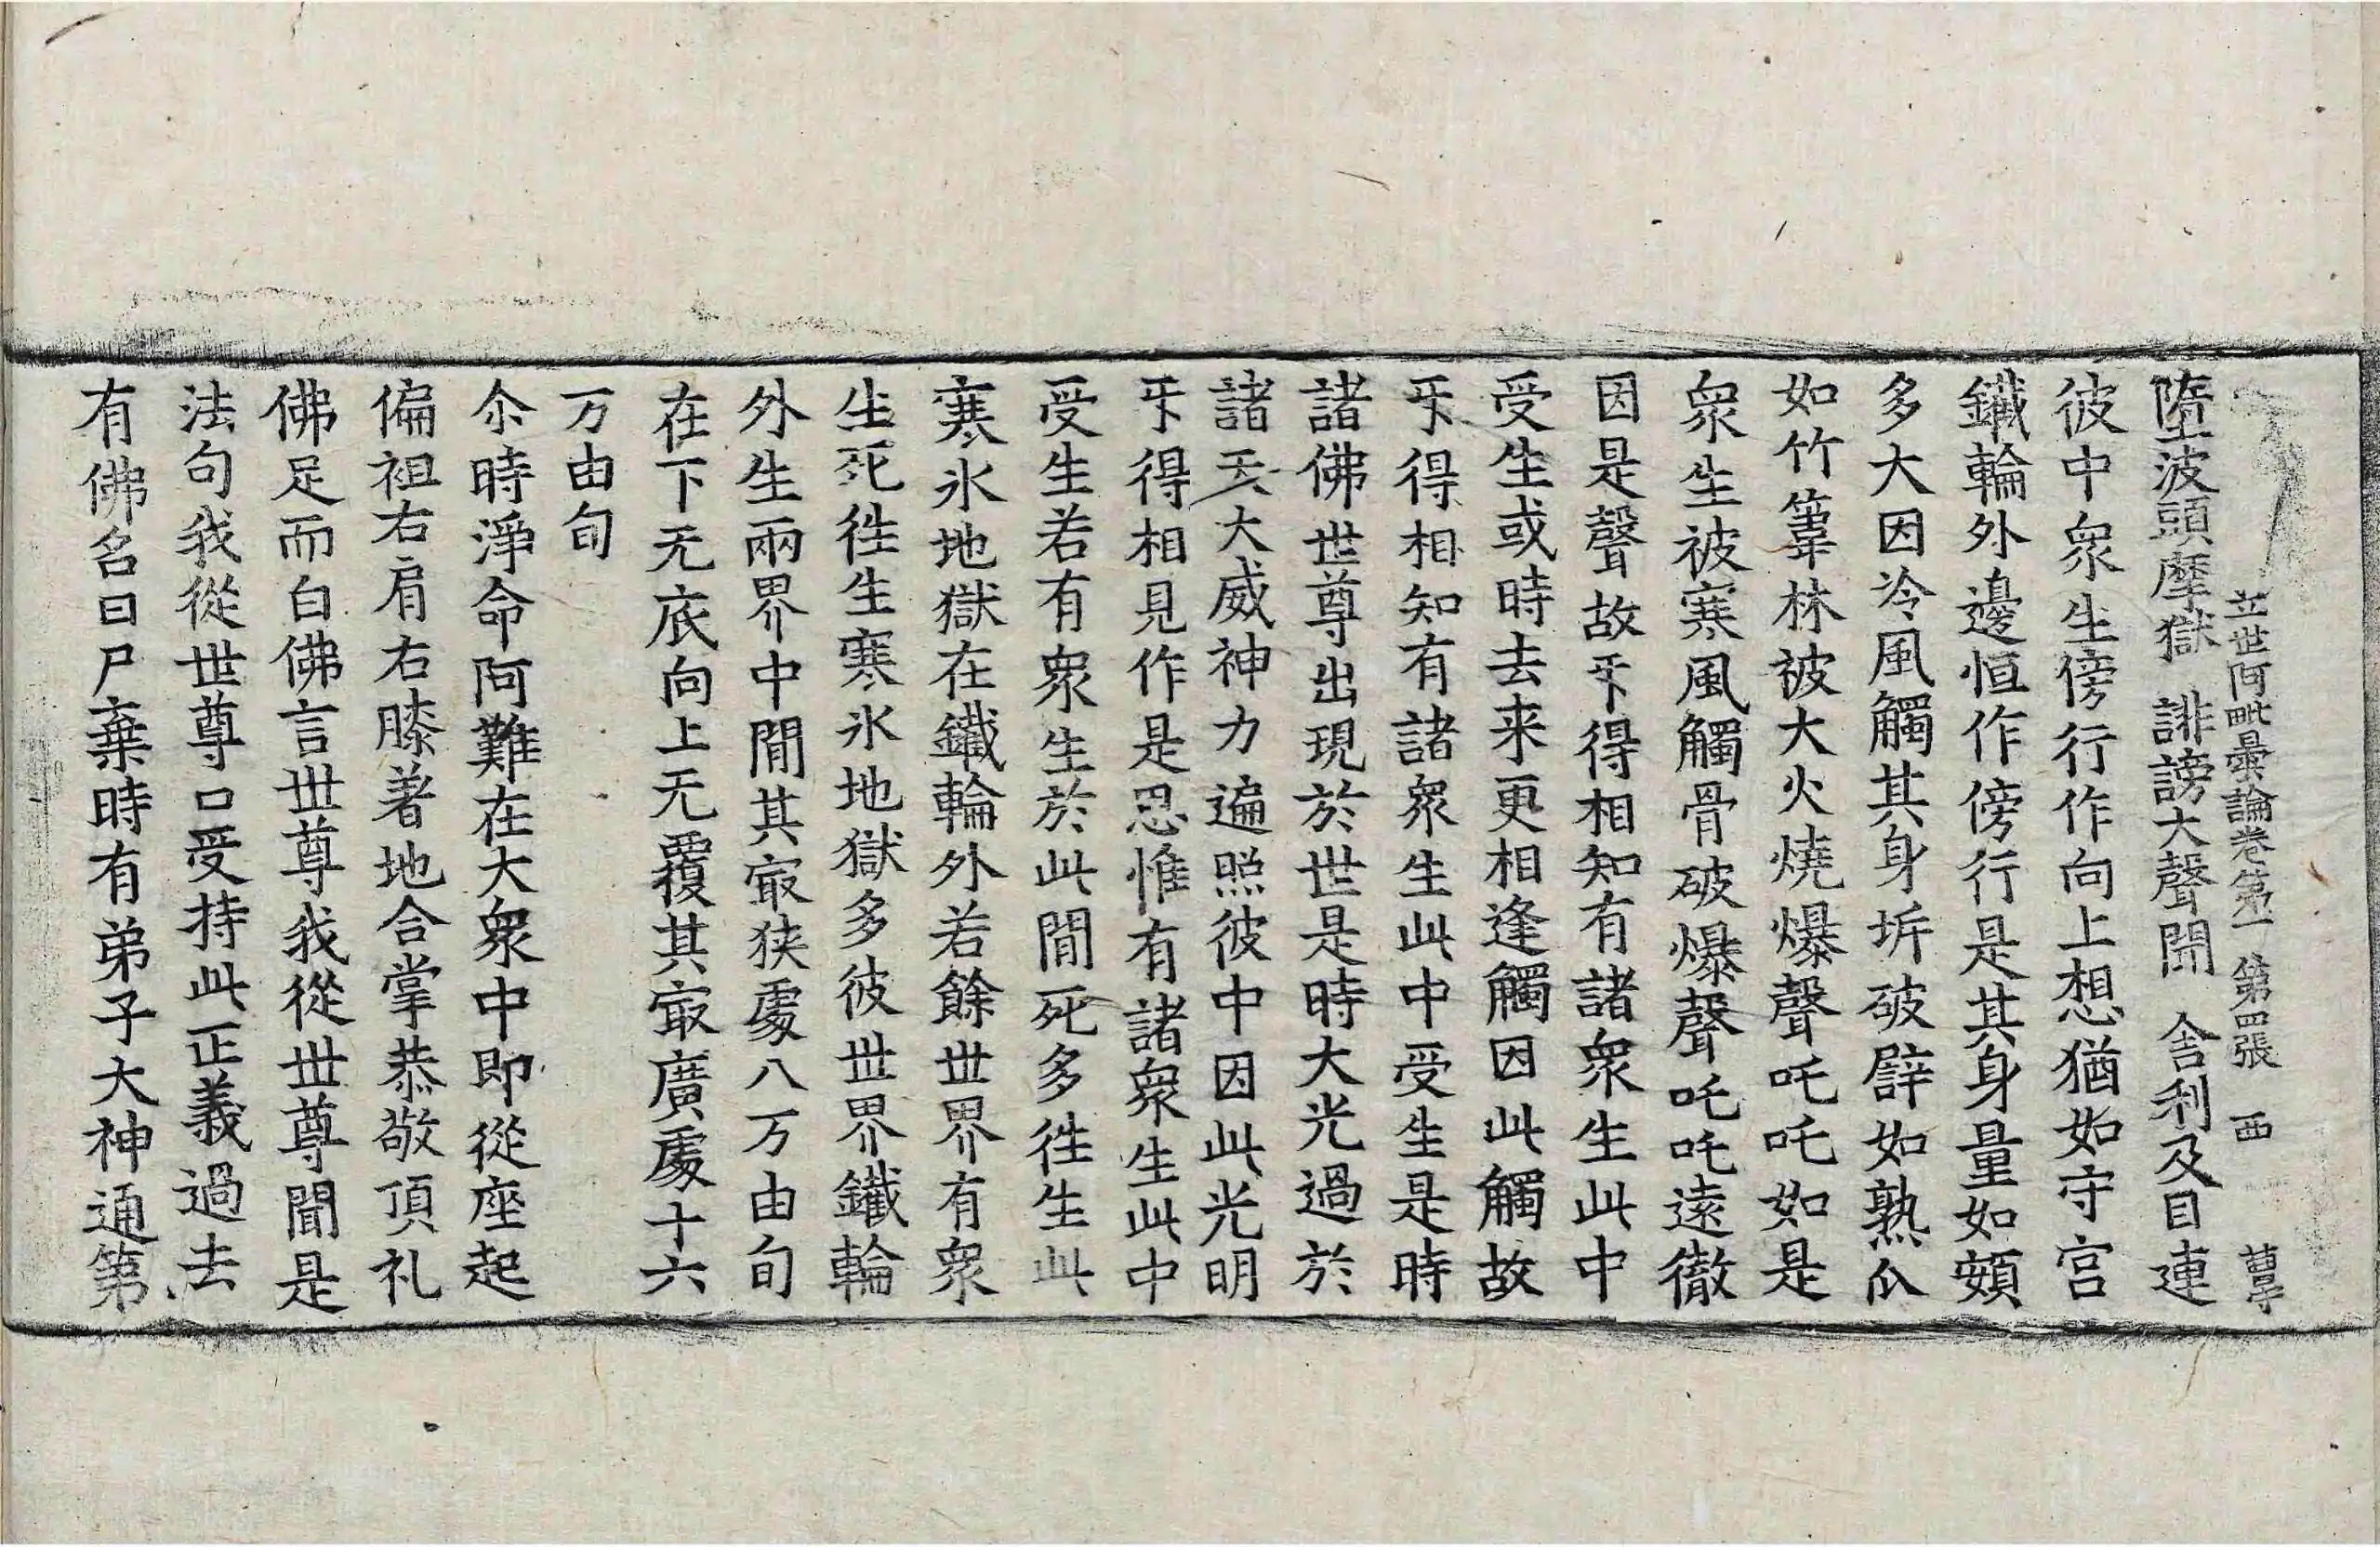 立世阿毗曇論卷第一 第四張 西
墮波頭摩獄 誹謗大聲聞 舍利及目連
彼中衆生傍行作向上想猶如守宮
鐵輪外邊恒作傍行是其身量如頞
多大因冷風觸其身坼破譬如熟瓜
如竹葦林被大火燒爆聲吒吒如是
衆生被寒風觸骨破爆聲吒吒遠徹
因是聲故不得相知有諸衆生此中
受生或時去来更相逢觸因此觸故
不得相知有諸衆生此中受生是時
諸佛世尊出現於世是時大光過於
諸天大威神力遍照彼中因此光明
不得相見作是忍惟有諸衆生此中
受生若有衆生於此間死多徃生此
寒氷地獄在鐵輪外若餘世界有衆
生死徃生寒氷地獄多彼世界鐵輪
外生兩界中間其㝡狹處八万由旬
在下无底向上无覆其㝡廣處十六
万由旬
尒時淨命阿難在大衆中即從座起
偏袒右肩右膝著地合掌恭敬頂礼
佛足而白佛言世尊我從世尊聞是
法句我從世尊口受持此正義過去
有佛名曰尸棄時有弟子大神通第